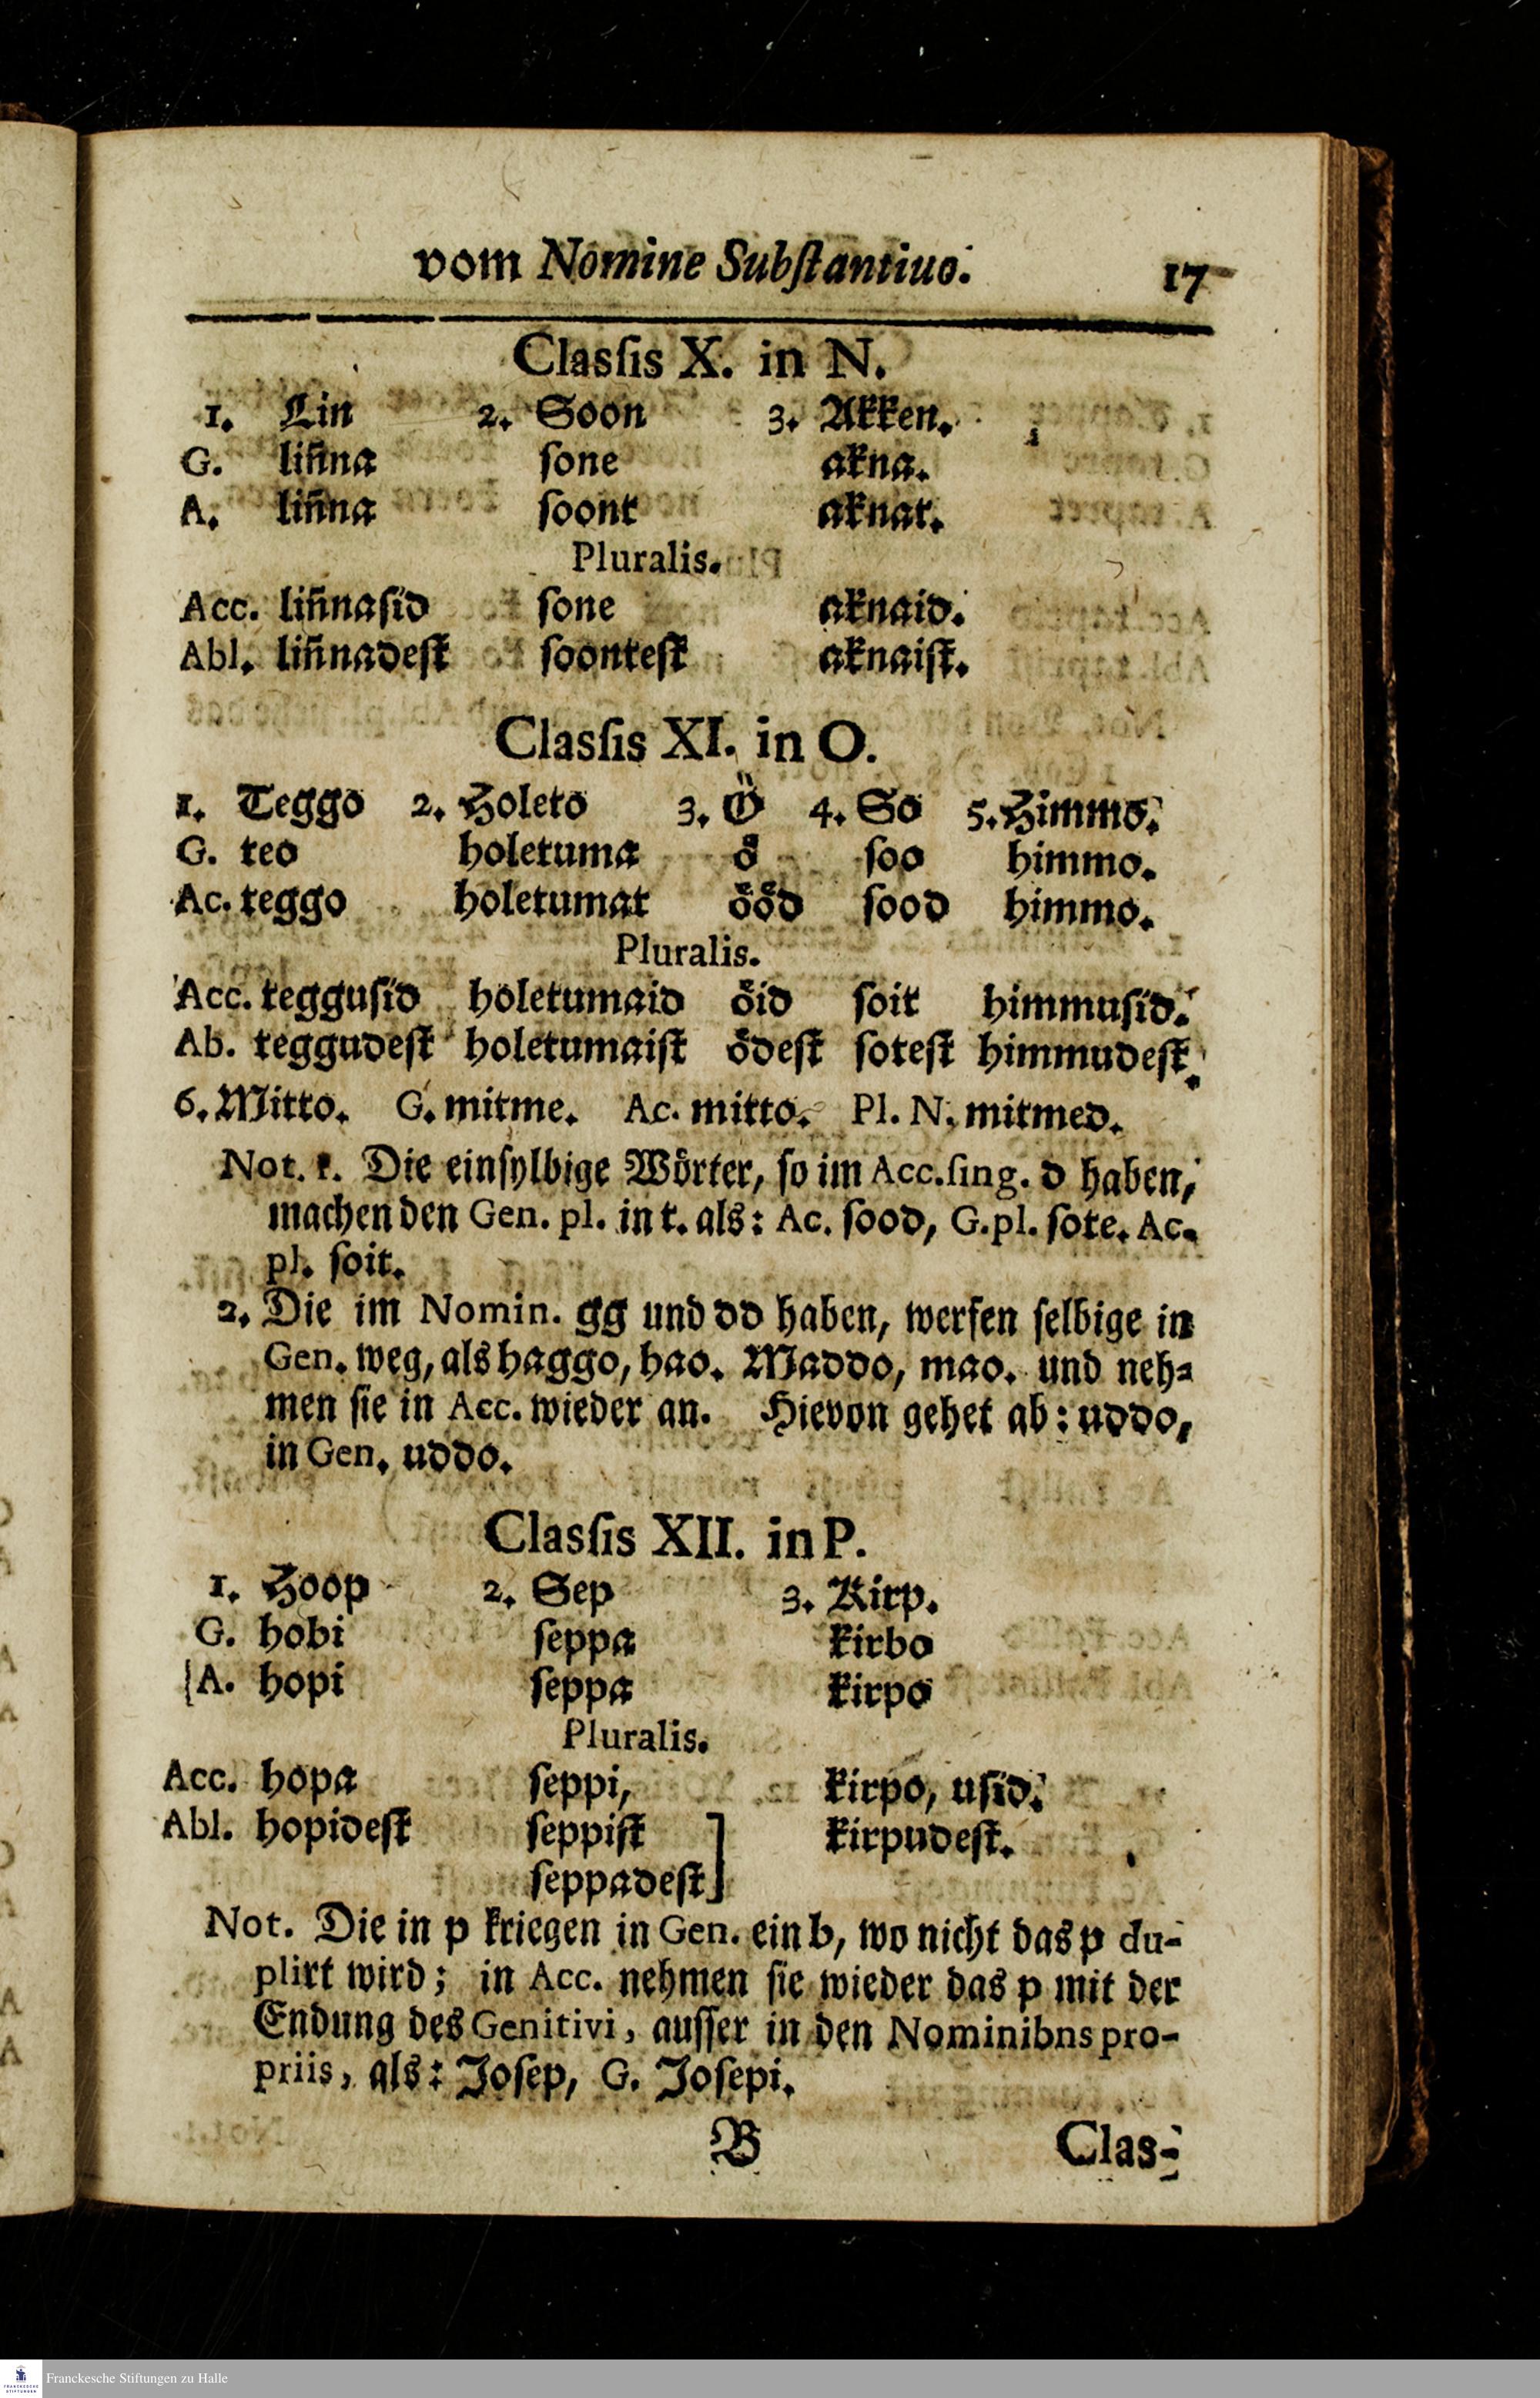 vom Nomine Subſtantiuo. 17
Clasſis X. in N.
1. Lin 2. Soon 3. Akken.
G. lin̄na ſone akna.
A. lin̄na ſoont aknat.
Pluralis.
Acc. lin̄naſid ſone aknaid.
Abl. lin̄nadeſt ſoonteſt aknaiſt.
Clasſis XI. in O.
1. Teggo 2. Holeto 3. Ö 4. So 5. Himmo.
G. teo holetuma oͤ ſoo himmo.
Ac. teggo holetumat oͤoͤd ſood himmo.
Pluralis.
Acc. tegguſid holetumaid oͤid ſoit himmuſid.
Ab. teggudeſt holetumaiſt oͤdeſt ſoteſt himmudeſt.
6. Mitto. G. mitme. Ac. mitto. Pl. N. mitmed.
Not. 1. Die einſylbige Woͤrter, ſo im Acc. ſing. d haben,
machen den Gen. pl. in t. als: Ac. ſood, G. pl. ſote. Ac.
pl. ſoit.
2. Die im Nomin. gg und dd haben, werfen ſelbige in
Gen. weg, als haggo, hao. Maddo, mao. und neh-
men ſie in Acc. wieder an. Hievon gehet ab: uddo,
in Gen. uddo.
Clasſis XII. in P.
1. Hoop 2. Sep 3. Kirp.
G. hobi ſeppa kirbo
A. hopi ſeppa kirpo
Pluralis.
Acc. hopa ſeppi, kirpo, uſid.
Abl. hopideſt ſeppiſt kirpudeſt.
ſeppadeſt]
Not. Die in p kriegen in Gen. ein b, wo nicht das p du-
plirt wird; in Acc. nehmen ſie wieder das p mit der
Endung des Genitivi, auſſer in den Nominibns pro-
priis, als: Joſep, G. Joſepi.
B Clas-
Franckesche Stiftungen zu Halle